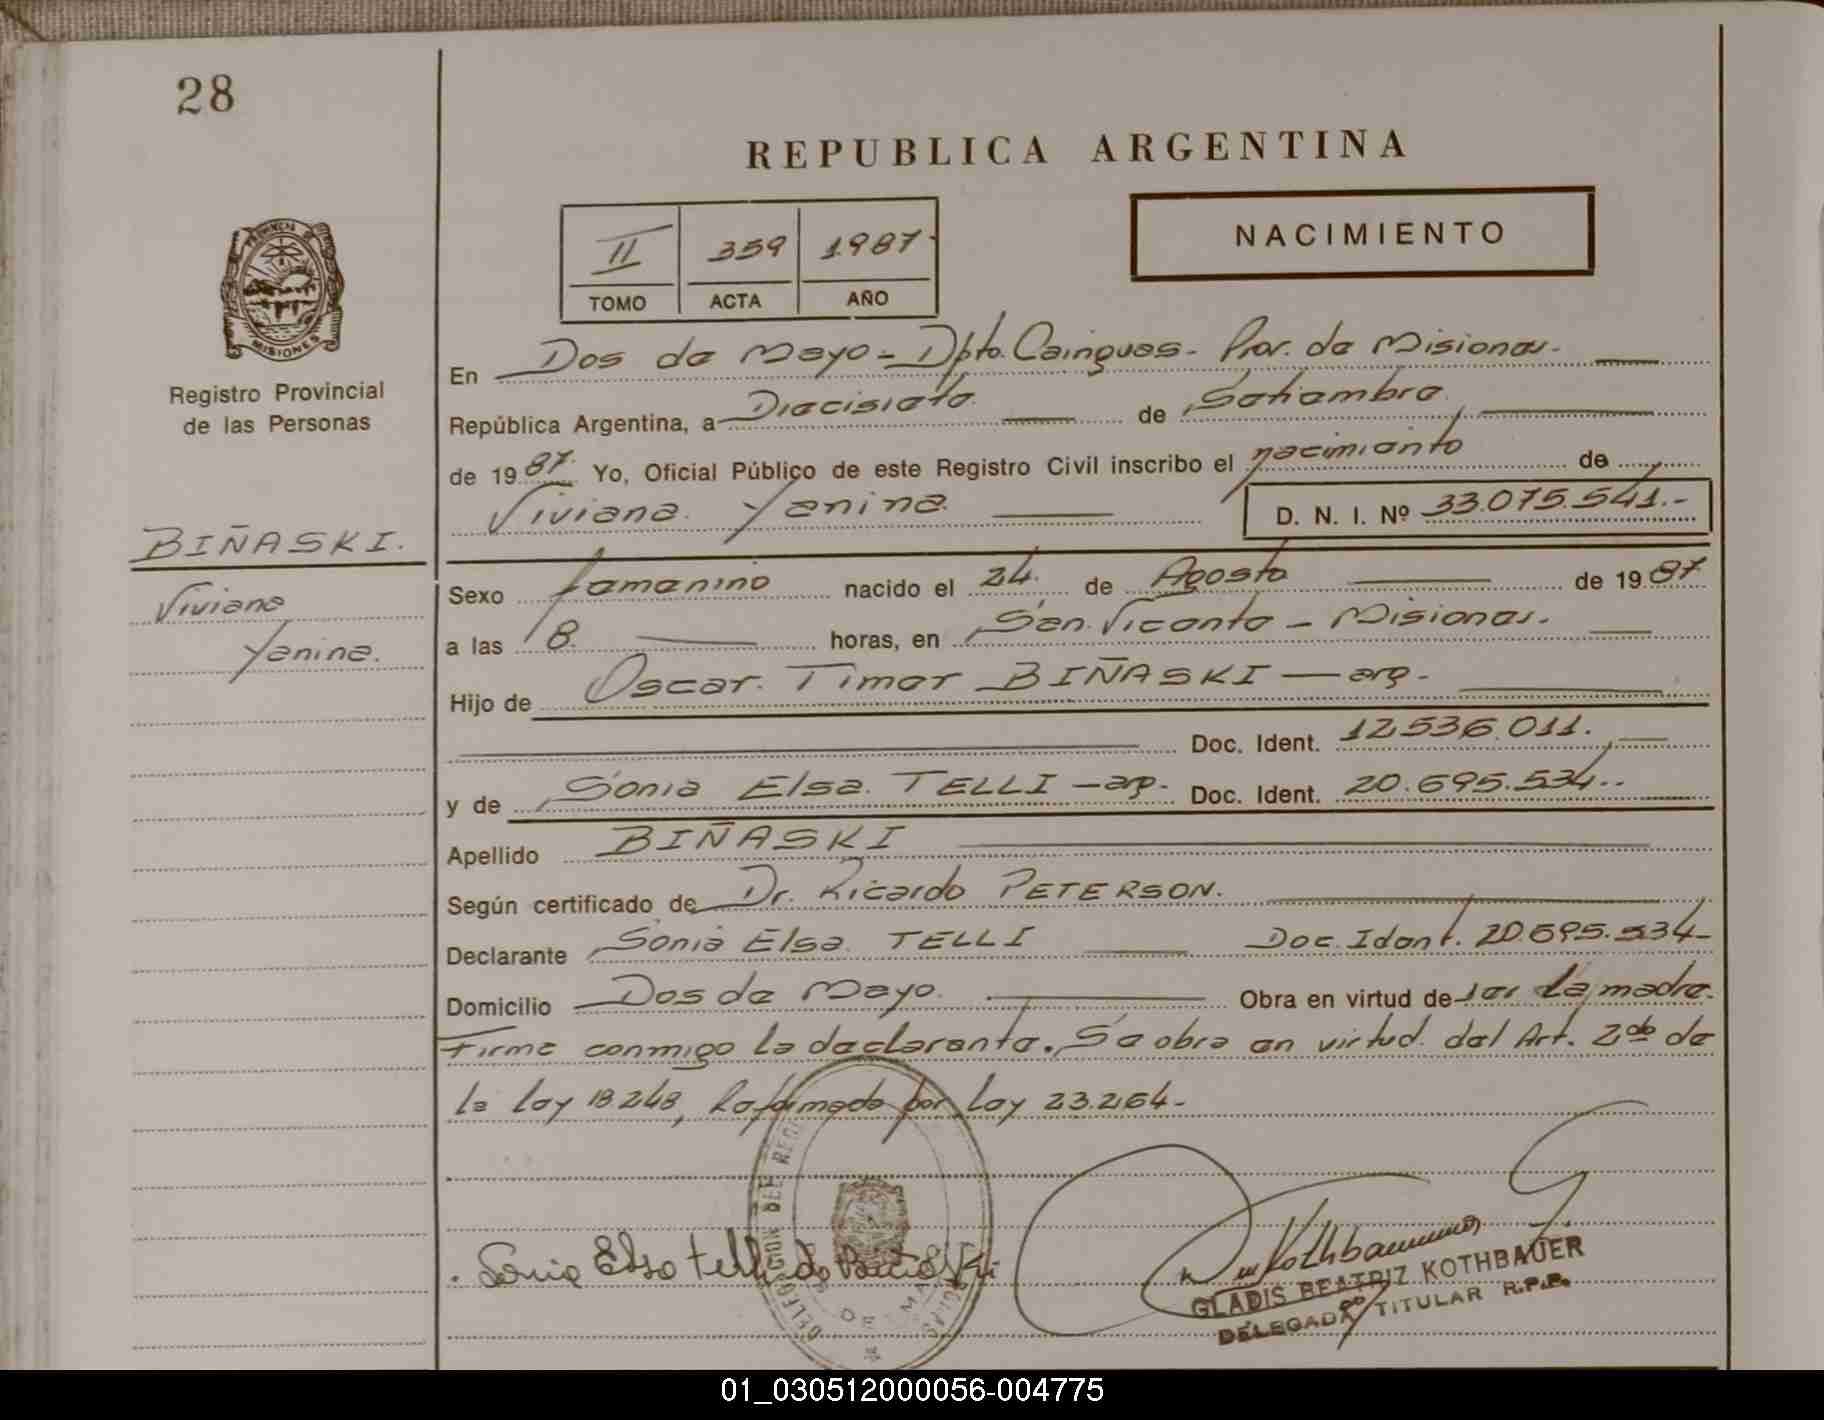 28
REPUBLICA ARGENTINA
NACIMIENTO
II 359 1987
TOMO ACTA AÑO
PROVINCIA DE
MISIONES
Registro Provincial
de las Personas
En Dos de Mayo - Dpto. Cainguas - Prov. de Misiones.
República Argentina, a Diecisiete de Setiembre
de 1987. Yo, Oficial Público de este Registro Civil inscribo el nacimiento de
Viviana Yanina D. N. I. Nº 33.075.541.-
BIÑASKI.
Viviana
Yanina.
Sexo femenino nacido el 24. de Agosto de 1987
a las 8. horas, en San Vicente - Misiones.
Hijo de Oscar Timor BIÑASKI — arg.
Doc. Ident. 12.536.011.
y de Sonia Elsa TELLI - arg. Doc. Ident. 20.695.534.
Apellido BIÑASKI
Según certificado de Dr. Ricardo PETERSON.
Declarante Sonia Elsa TELLI Doc. Ident. 20.695.534-
Domicilio Dos de Mayo. Obra en virtud de ser la madre.
Firma conmigo la declarante. Se obra en virtud del Art. 2do de
la ley 18248, Reformado por Ley 23.264-
Sonia Elsa Telli de
Kothbauer
GLADIS BEATRIZ KOTHBAUER
DELEGADA TITULAR R.P.P.
DE MA
01_030512000056-004775